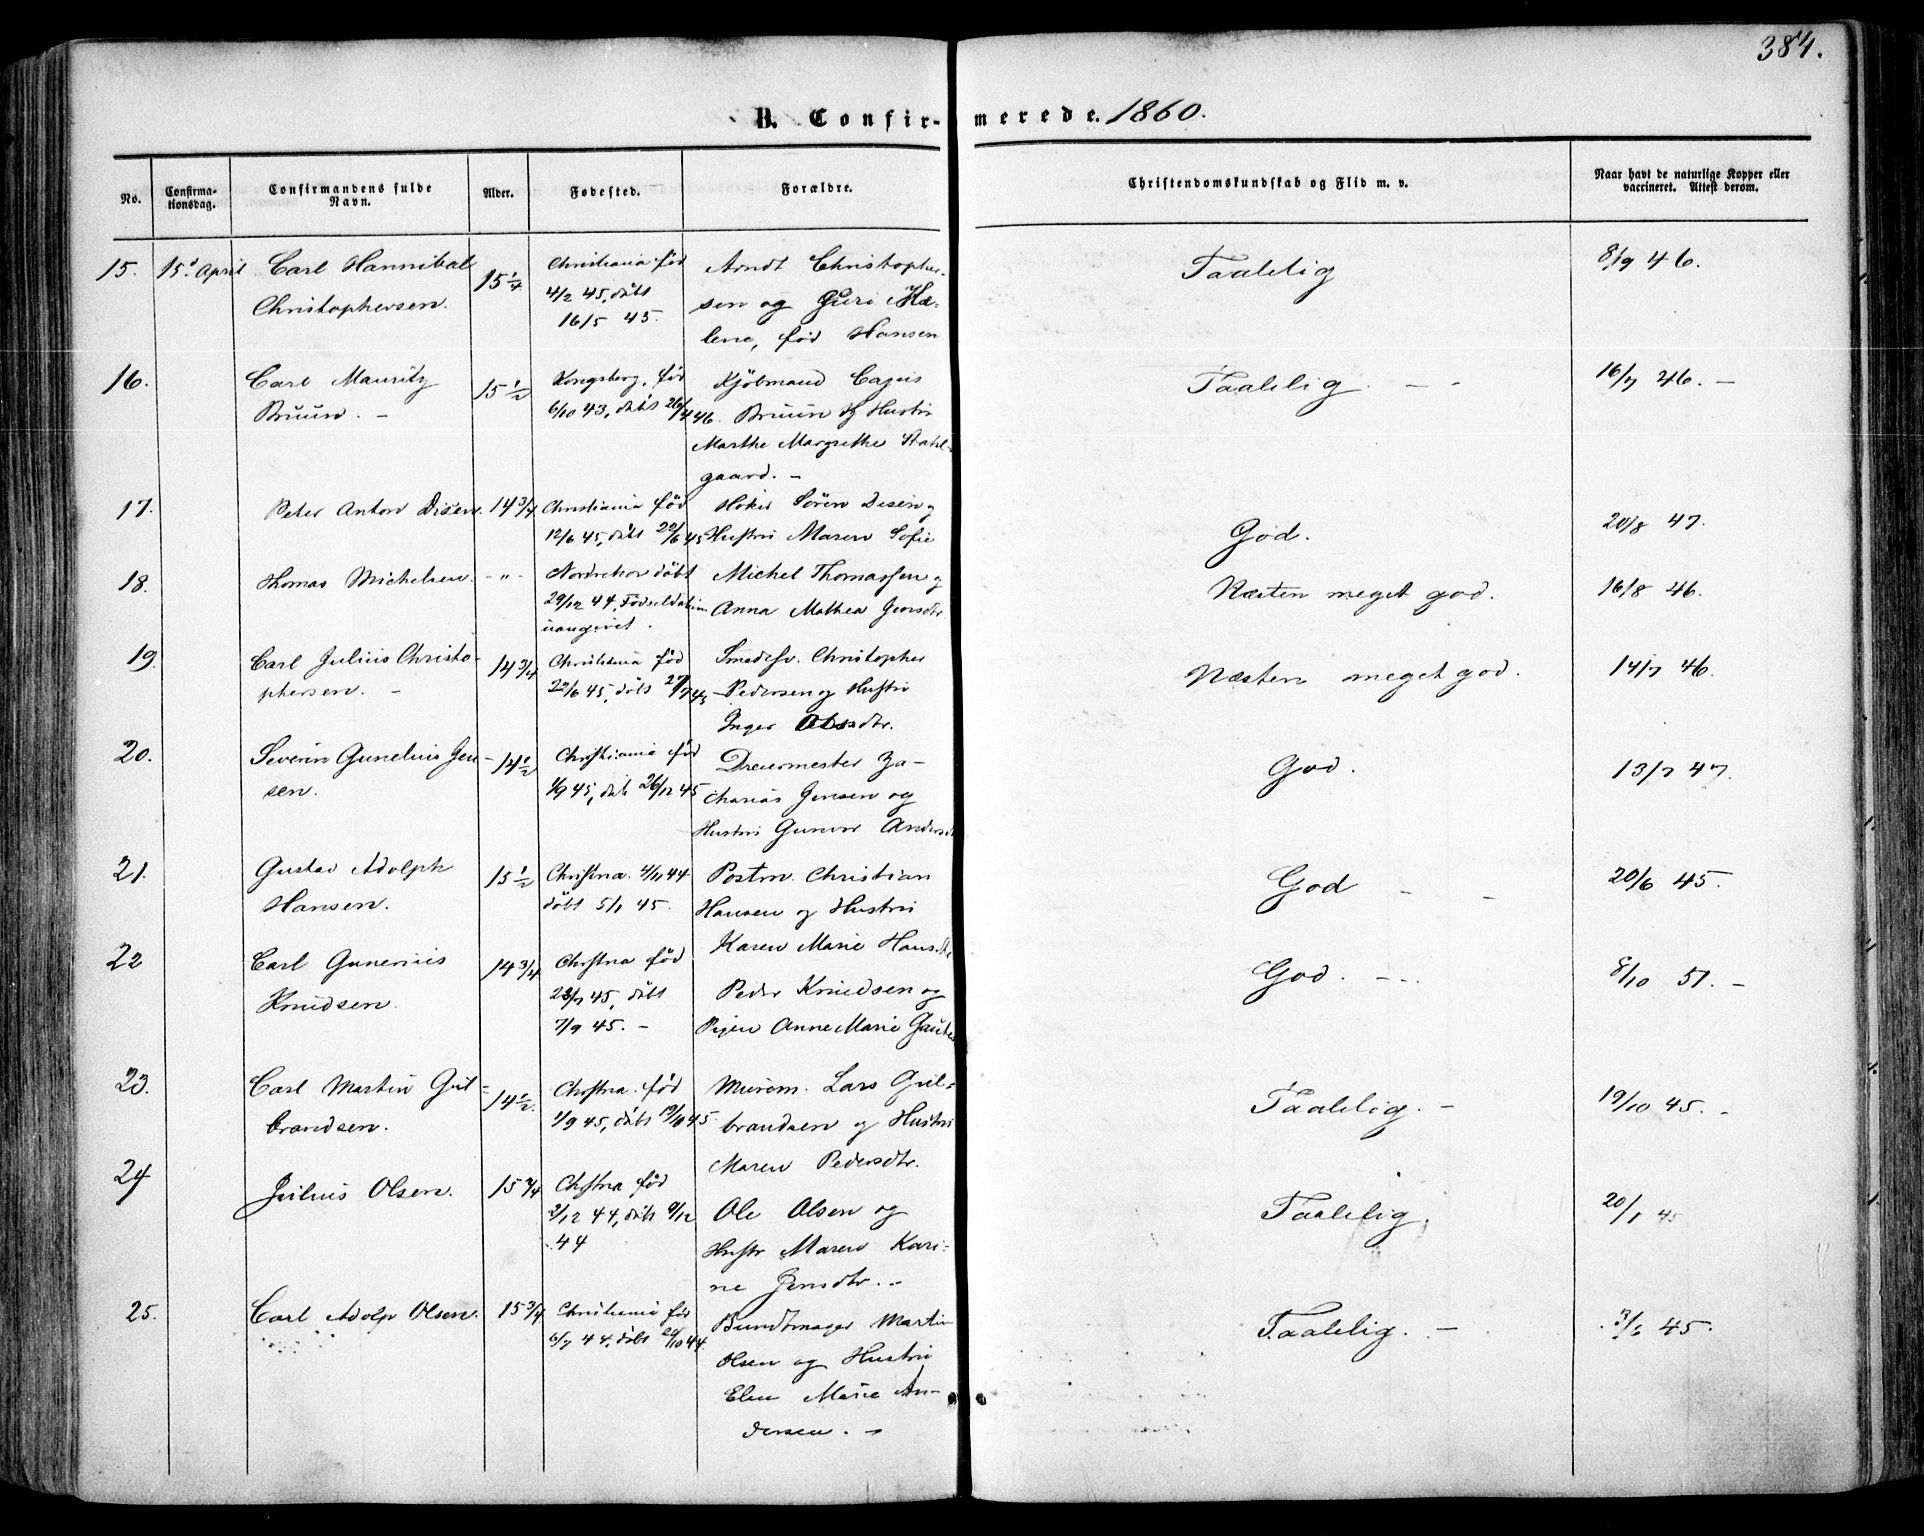 384.
B. Confirmerede. 1860.
No.
Confirmationsdag.
Confirmandens fulde Navn.
Alder.
Fødested.
Forældre.
Christendomskundskab og Flid m. v.
Naar havt de naturlige Kopper eller vaccineret. Attest derom.
15. 15d April Carl Hannibal 15 1/4 Christiania fød Arndt Christopher- Taalelig 8/9 46.
Christophersen. 4/2 45, døbt sen og Guri Hæ-
16/5 45. lene, fød Hansen
16. Carl Mauritz 15 1/2 Kongsberg, fød Kjøbmand Taalelig. - - 16/7 46. -
Bruun. - 6/10 43, døbt 26/4 46. Bruun og Hustru
Marthe Margrethe Stahl-
gaard. -
17. Peter Anton Disen. 14 3/4 Christiania fød Høker Sören Disen og God. 20/8 47.
12/6 45, døbt 29/6 45 Hustru Maren Sofie
18. Thomas Michelsen. - " - døbt Michel Thomassen og Næsten meget god. 16/8 46.
29/12 44, Födseldatum Anna Mathea Jensdtr
uangivet.
19. Carl Julius Christo- 14 3/4 Christiania fød Smedesv. Christopher Næsten meget god. 14/7 46.
phersen. - 22/6 45, døbt 27/7 45 Pedersen og Hustru
Inger Olsdtr.
20. Severin Gunelius Jen- 14 1/2 Christiania fød Dreiermester Za- God. 13/7 47.
sen. 1/9 45, døbt 26/12 45 charias Jensen og
Hustru Gunvor Andersdt
21. Gustav Adolph 15 1/2 Christna. 4/11 44 Postm. Christian God - - 20/6 45.
Hansen. døbt 5/1 45. Hansen og Hustru
Karen Marie Hansdtr
22 Carl Gunerius 14 3/4 Chrstna fød Peder Knudsen og God. - - 8/10 51. -
Knudsen. 23/7 45, døbt Pigen Anne Marie
7/9 45. -
23. Carl Martin Gul- 14 1/2. Chrstna. fød Murem. Lars Gul- Taalelig. - 19/10 45. -
brandsen. 1/9 45, døbt 19/10 45. brandsen og Hustru
Maren Pedersdtr.
24 Julius Olsen. 15 1/4 Chrstna fød Ole Olsen og Taalelig. 20/1 45
2/12 44, døbt 9/12 Hustr Maren Kari-
44 ne Jensdtr. -
25. Carl Adolp Olsen. 15 3/4 Christiania fød Bundtmager Martin Taalelig. - 3/6 45.
6/7 44, døbt 20/10 44. Olsen og Hustru
Elen Marie An-
dersen. -